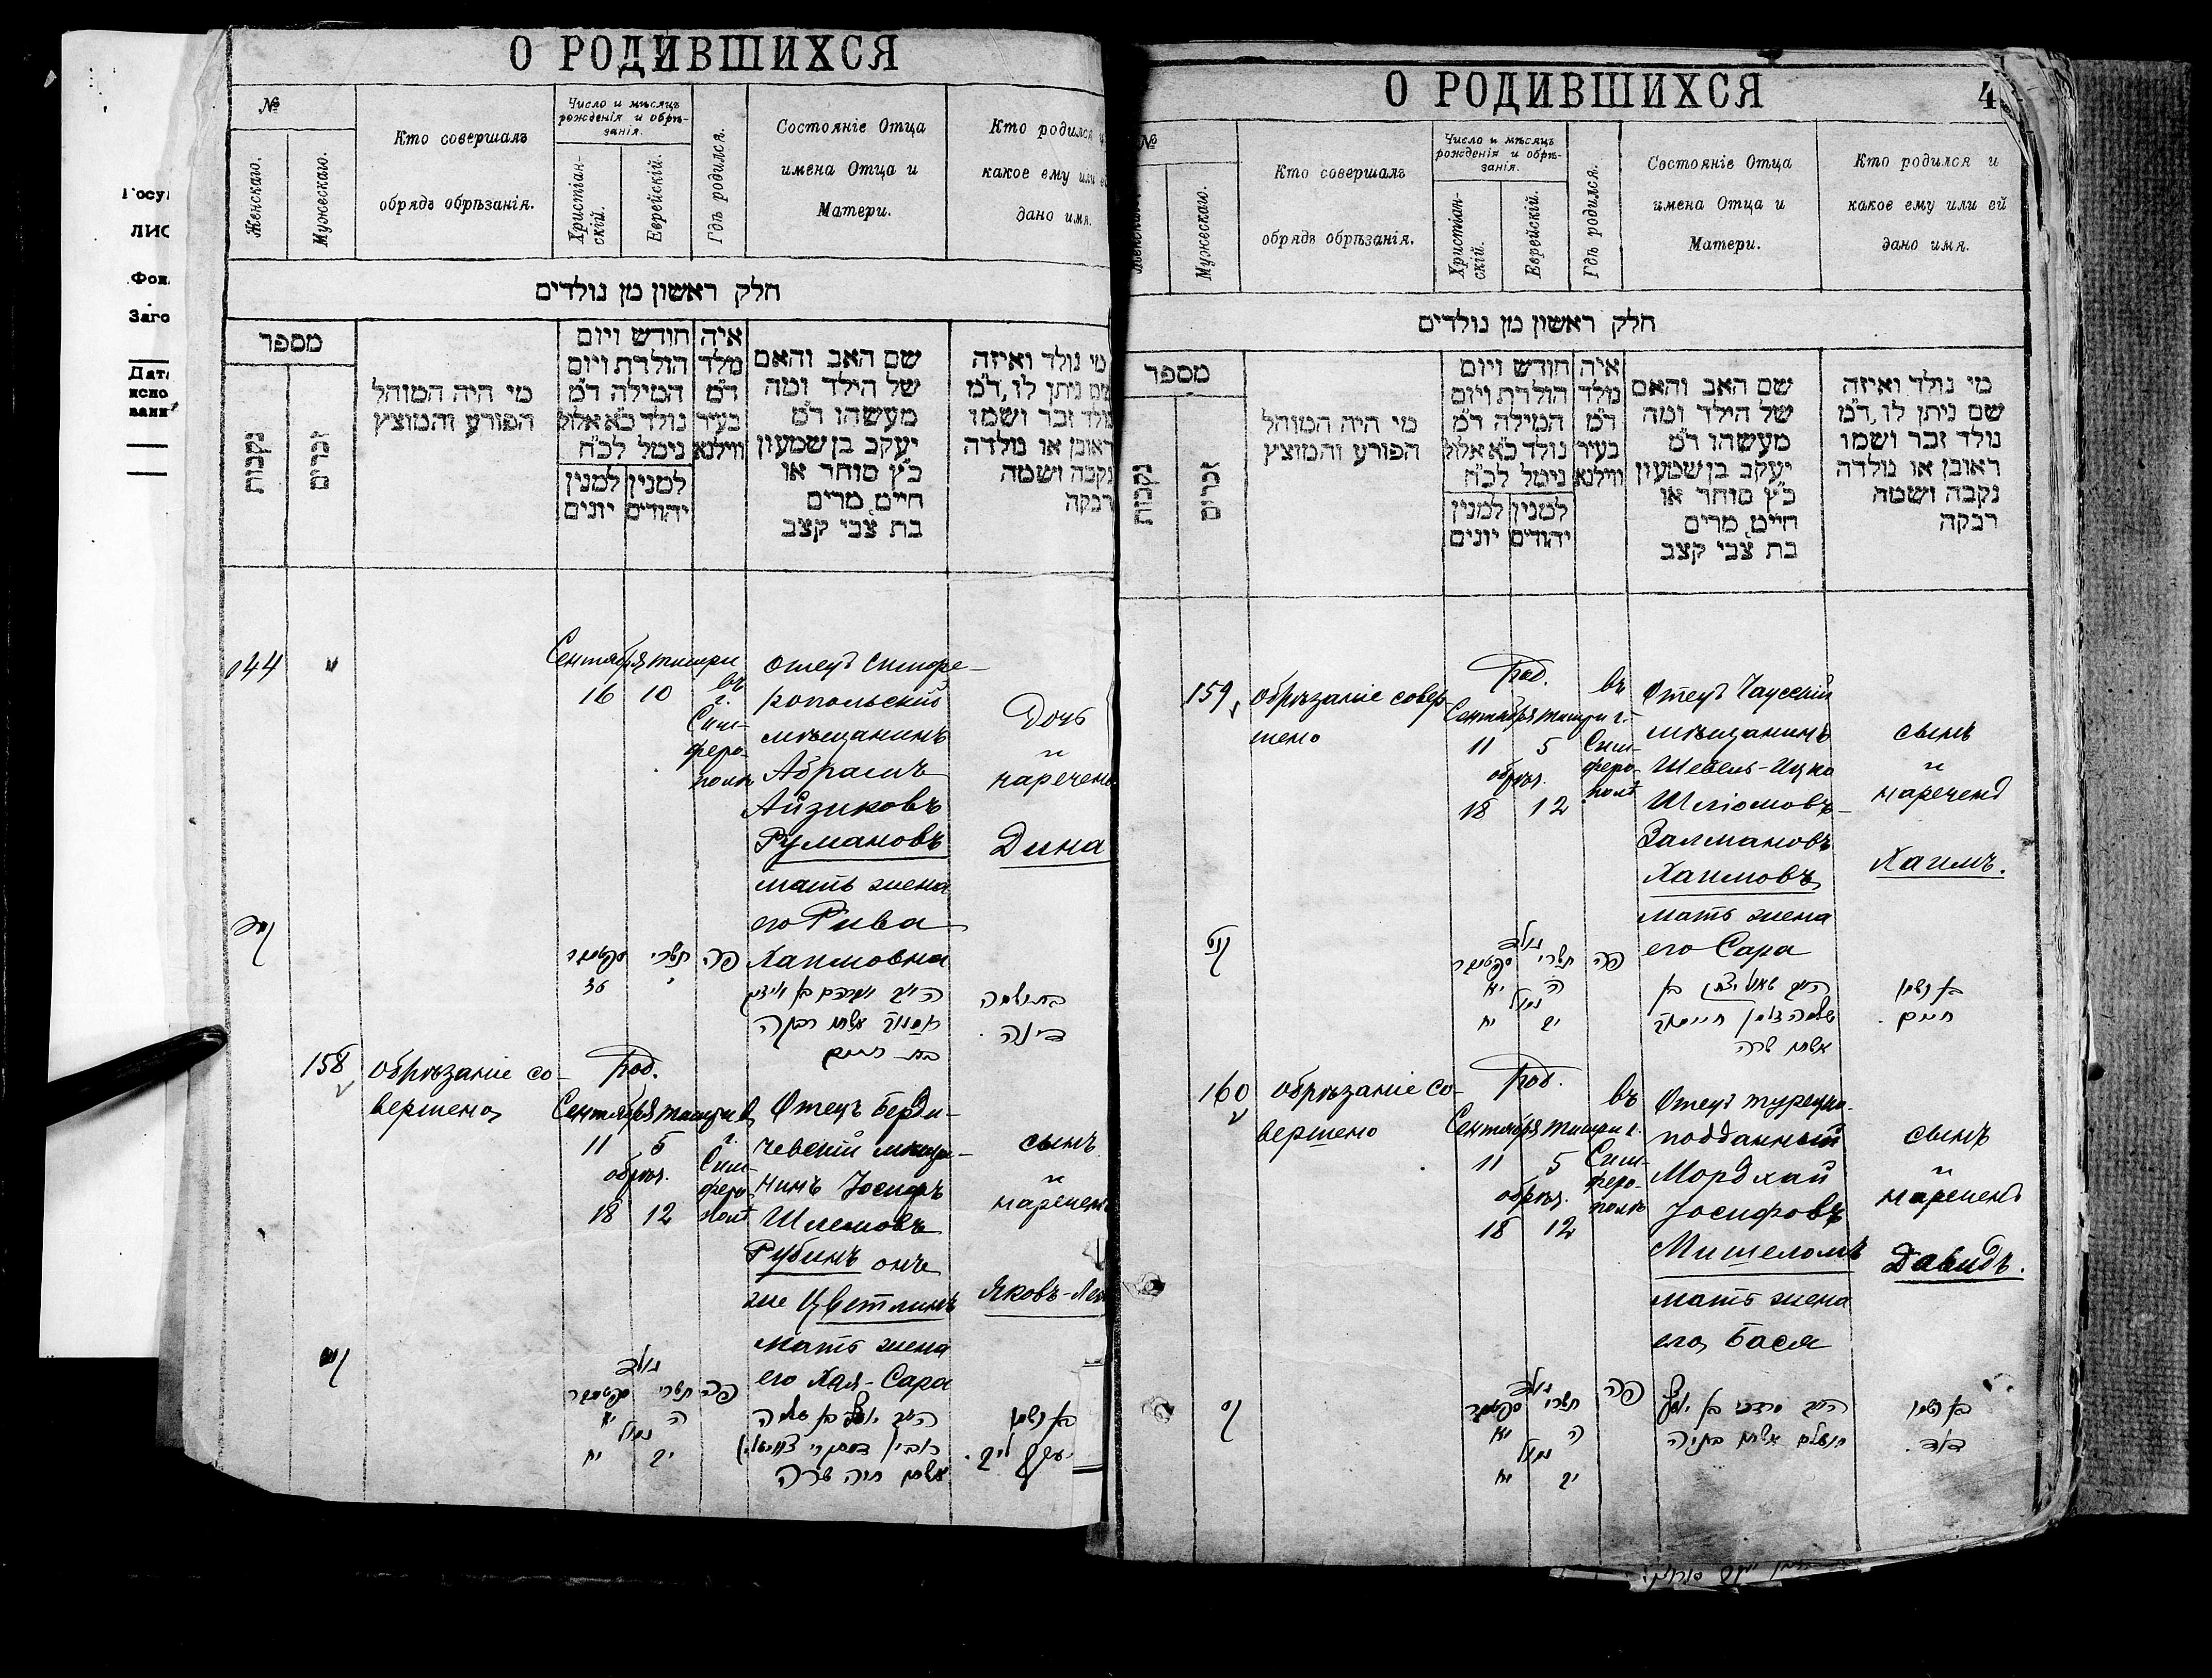 Госуд
ЛИС
Фон
Заго
Дата
испо
вани
О РОДИВШИХСЯ
№
Женскаго.
Мужескаго.
Кто совершалъ
обрядъ обрѣзанія.
Число и мѣсяцъ
рожденія и обрѣ-
занія.
Христіан-
скій.
Еврейскій.
Гдѣ родился.
Состояніе Отца
имена Отца и
Матери.
Кто родился и
какое ему или ей
дано имя.
חלק ראשון מן נולדים
מספר
נקבות
זכרים
מי היה המוהל
הפורע והמוצץ
חודש ויום
הולדת ויום
המילה ד"מ
נולד כ"א אלול
נימל לכ"ח
למנין למנין
יהודים יונים
איה
מלד
ד"מ
בעיר
ווילנא
שם האב והאם
של הילד ומה
מעשהו ד"מ
יעקב בן שמעון
כ"ץ סוחר או
חייט מרים
בת צבי קצב
מי נולד ואיזה
שם ניתן לו, ד"מ
נולד זכר ושמו
ראובן או נולדה
נקבה ושמה
רבקה
144 "
Сентября тишри
16 10
въ
г.
Сим-
феро-
полѣ
отецъ симфе-
ропольскій
мѣщанинъ
Абрамъ
Айзиковъ
Румановъ
мать жена
его Рива
Хаимовна
Дочь
и
наречена
Дина
ספטמבר תשרי פה
בת ושמה
דינה
158
обрѣзаніе со-
вершено
Род.
Сентября тишри в
11 5
обрѣз.
18 12
г.
Сим-
феро-
полѣ
Отецъ Берди-
чевскій мѣща-
нинъ Іосифъ
Шлемовъ
Рубинъ онъ
же Цветлинъ
мать жена
его Хая-Сара
сынъ
и
нареченъ
Яковъ-Лей
נולד
ספטמבר תשרי פה
יא ה
נמול
יח יב
אשתו חיה שרה
בן ושמו
יעקב ליב
О РОДИВШИХСЯ
4
№
Женскаго.
Мужескаго.
Кто совершалъ
обрядъ обрѣзанія.
Число и мѣсяцъ
рожденія и обрѣ-
занія.
Христіан-
скій.
Еврейскій.
Гдѣ родился.
Состояніе Отца
имена Отца и
Матери.
Кто родился и
какое ему или ей
дано имя.
חלק ראשון מן נולדים
מספר
נקבות
זכרים
מי היה המוהל
הפורע והמוצץ
חודש ויום
הולדת ויום
המילה ד"מ
נולד כ"א אלול
נימל לכ"ח
למנין למנין
יהודים יונים
איה
מלד
ד"מ
בעיר
ווילנא
שם האב והאם
של הילד ומה
מעשהו ד"מ
יעקב בן שמעון
כ"ץ סוחר או
חייט מרים
בת צבי קצב
מי נולד ואיזה
שם ניתן לו, ד"מ
נולד זכר ושמו
ראובן או נולדה
נקבה ושמה
רבקה
159
обрѣзаніе совер-
шено
Род.
Сентября тишри г.
11 5
обрѣз.
18 12
въ
Сим-
феро-
полѣ
Отецъ Чаусскій
мѣщанинъ
Шевель-Ицко
Шліомовъ-
Залмановъ
Хаимовъ
мать жена
его Сара
сынъ
и
нареченъ
Хаимъ.
נולד
ספטמבר תשרי פה
יא ה
נמול
יח יב
אשתו שרה
בן ושמו
חיים
160
обрѣзаніе со-
вершено
Род.
Сентября тишри г.
11 5
обрѣз.
18 12
въ
Сим-
феро-
полѣ
Отецъ турецко-
подданный
Мордхай
Іосифовъ
Мишеломъ
мать жена
его Бася
сынъ
и
нареченъ
Давидъ.
נולד
ספטמבר תשרי פה
יא ה
נמול
יח יב
מרדכי בן יוסף
בן ושמו
דוד